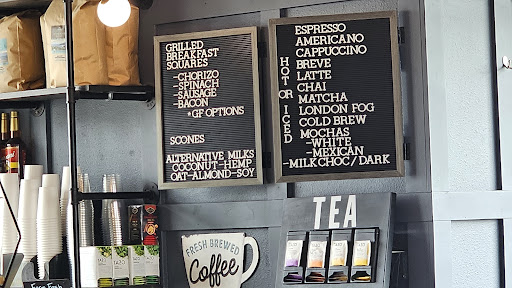 GRILLED
BREAKFAST
SQUARES
-CHORIZO
-SPINACH
-SAUSAGE
-BACON
*GF OPTIONS
SCONES
ALTERNATIVE MILKS
COCONUT-HEMP
OAT-ALMOND-SOY
HOT OR ICED
ESPRESSO
AMERICANO
CAPPUCCINO
BREVE
LATTE
CHAI
MATCHA
LONDON FOG
COLD BREW
MOCHAS
-WHITE
-MEXICAN
-MILK CHOC/DARK
TEA
FRESH BREWED
Coffee